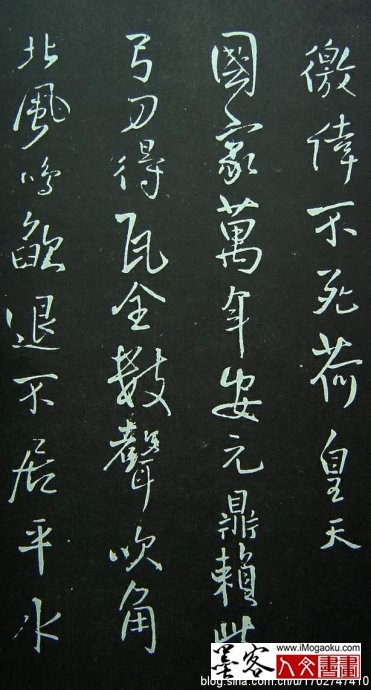 徼倖不死荷皇天
國家萬年安元鼎賴此
弓刀得瓦全數聲吹角
北風鳴退不居平水
www.iMogaoku.com
墨客
人文書畫
blog.sina.com.cn/u/1702747410